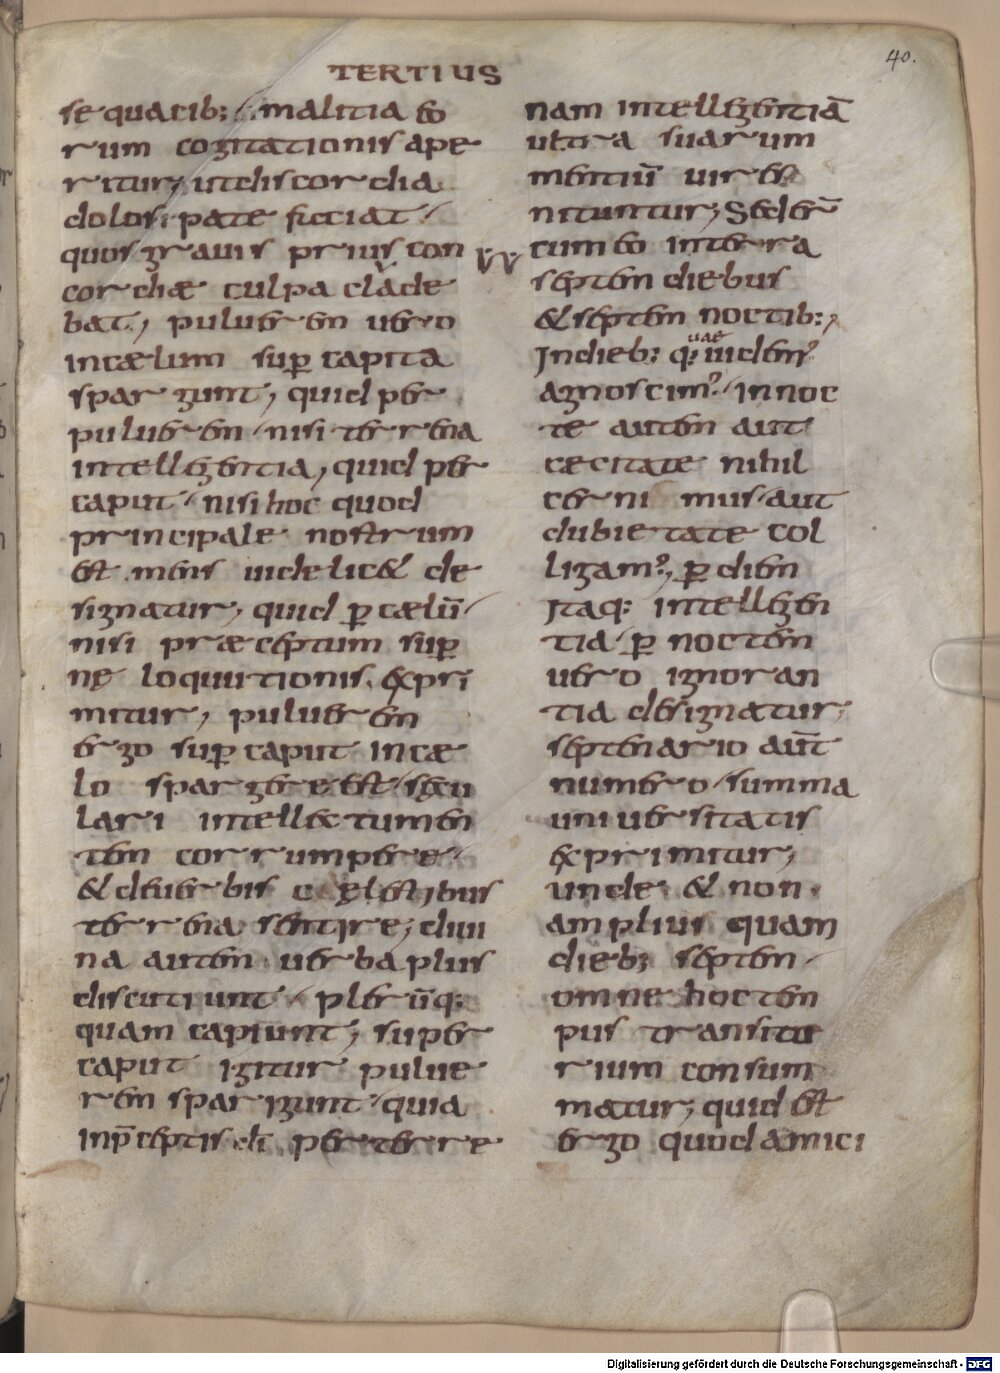 TERTIUS
40.
sequacib; malitia eo
rum cogitationis ape
ritur, ut discordia
dolosi pate fiat
quos gravis prius con
cordiae culpa clade
bat, pulverem vero
in caelum sup capita
spargunt, quid per
pulverem nisi terrena
intellegentia, quid per
caput nisi hoc quod
principale nostrum
est mens videlic& de
signatur, quid p caelū
nisi praeceptum sup
nę loquutionis expri
mitur, pulverem
ergo sup caput in cae
lo spargere est saecu
lari intellectu men
tem corrumpere
& de verbis caelestibus
terrena sentire, divi
na autem verba plus
discutiunt plerūq;
quam capiunt, super
caput igitur pulve
rem spargunt quia
in p̄ceptis di per terre
nam intellegentiā
ultra suarum
mentiū vires
nituntur, Sederē
cum eo in terra
septem diebus
& septem noctib;,
In dieb; q; vivae videm?
agnoscim? in noc
te autem aut
caecitate nihil
cernimus aut
dubietate col
ligam?, p diem
Itaq; intellegen
tia p noctem
vero ignoran
tia designatur,
septenario aūt
numero summa
universitatis
exprimitur,
unde & non
amplius quam
dieb; septem
omne hoc tem
pus transito
rium consum
matur, quid est
ergo quod amici